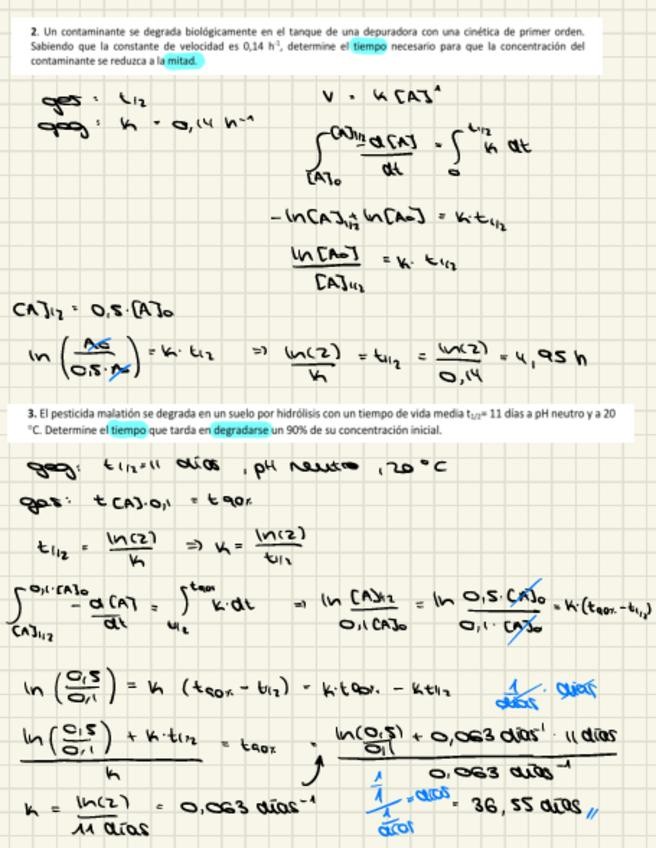 2. Un contaminante se degrada biológicamente en el tanque de una depuradora con una cinética de primer orden.
Sabiendo que la constante de velocidad es 0,14 h⁻¹, determine el tiempo necesario para que la concentración del
contaminante se reduzca a la mitad.
ges: t1/2
geg: k = 0,14 h⁻¹
v = k [A]¹
∫_{[A]0}^{[A]1/2} -d[A]/dt = ∫_0^{t1/2} k dt
-ln[A]1/2 + ln[A0] = k·t1/2
ln[A0]/[A]1/2 = k· t1/2
[A]1/2 = 0,5·[A]0
ln (A0/0,5·A0) = k· t1/2 => ln(2)/k = t1/2 = ln(2)/0,14 = 4,95 h
3. El pesticida malatión se degrada en un suelo por hidrólisis con un tiempo de vida media t1/2= 11 días a pH neutro y a 20
°C. Determine el tiempo que tarda en degradarse un 90% de su concentración inicial.
geg: t1/2=11 días, pH neutro, 20°C
ges: t [A]·0,1 = t90%
t1/2 = ln(2)/k => k = ln(2)/t1/2
∫_{[A]1/2}^{0,1·[A]0} -d[A]/dt = ∫_{t1/2}^{t90%} k·dt => ln [A]1/2/0,1[A]0 = ln 0,5·[A]0/0,1·[A]0 = k·(t90%-t1/2)
ln (0,5/0,1) = k (t90% - t1/2) = k·t90% - kt1/2
1/días · días
(ln (0,5/0,1) + k·t1/2)/k = t90% = (ln(0,5)/0,1 + 0,063 días⁻¹ · 11 días)/0,063 días⁻¹
k = ln(2)/11 días = 0,063 días⁻¹
1/1/1/días = días
= 36,55 días //